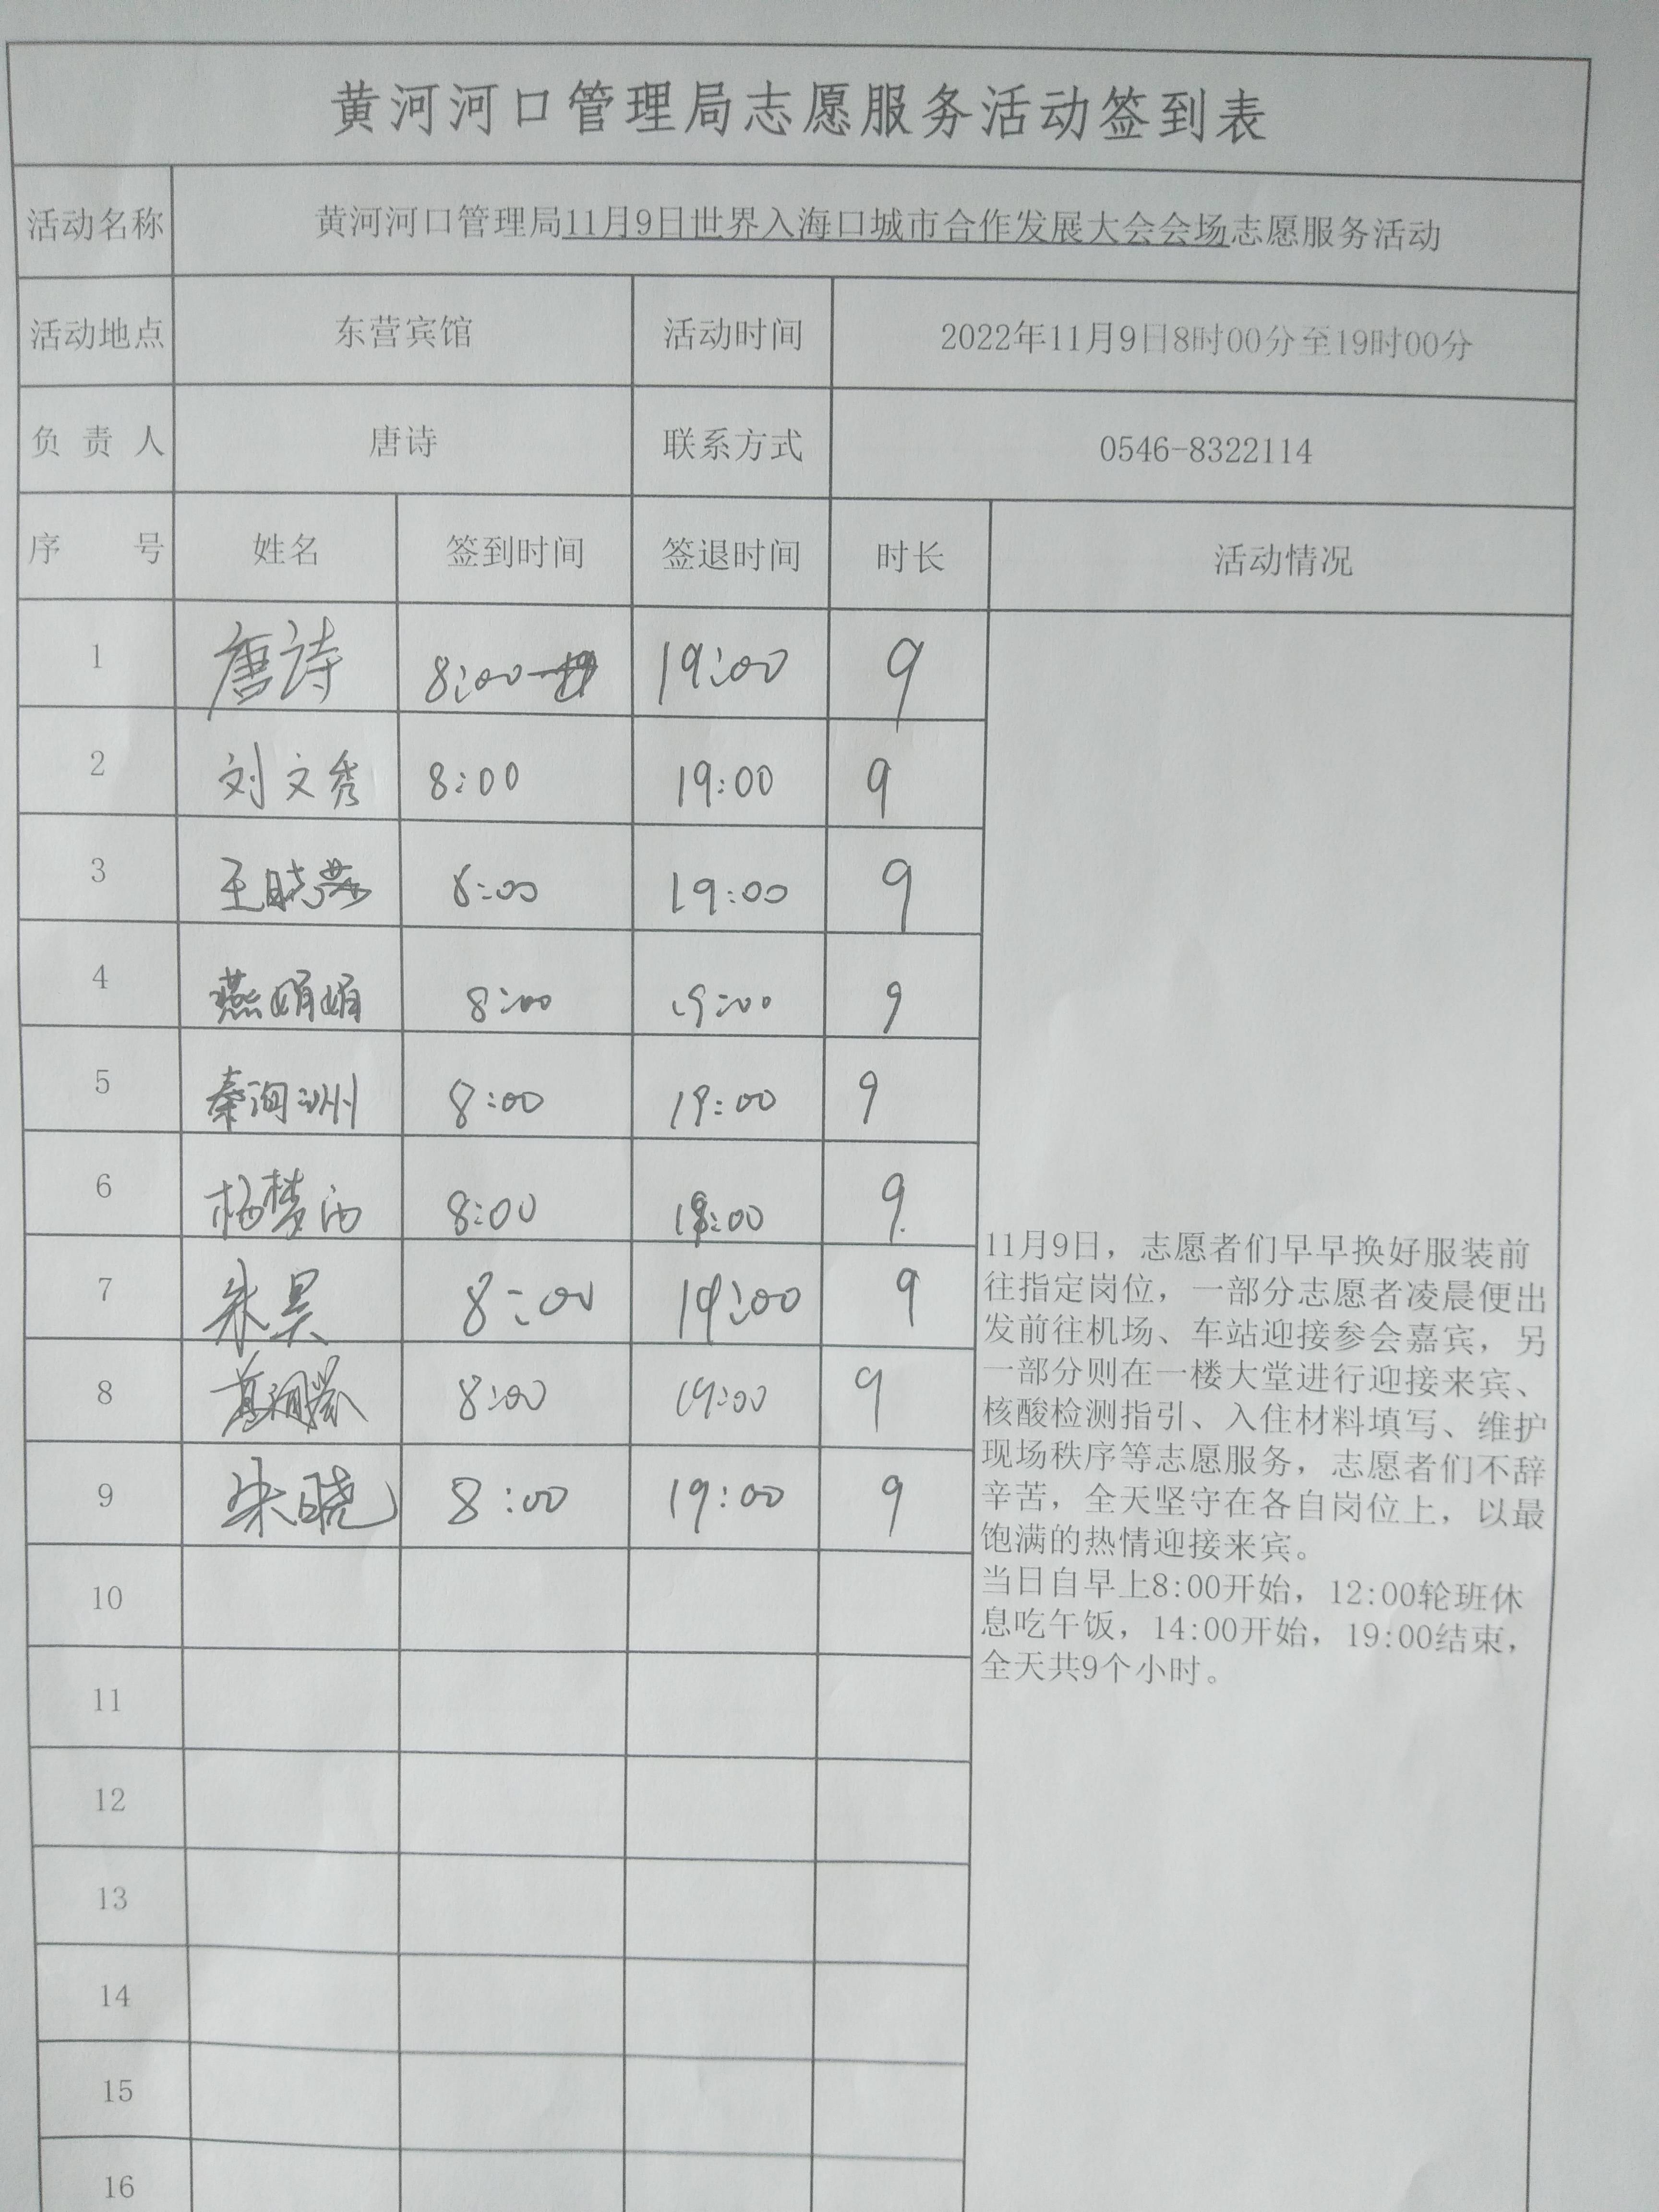 黄河河口管理局志愿服务活动签到表
活动名称 黄河河口管理局11月9日世界入海口城市合作发展大会会场志愿服务活动
活动地点 东营宾馆 活动时间 2022年11月9日8时00分至19时00分
负责人 唐诗 联系方式 0546-8322114
序号 姓名 签到时间 签退时间 时长 活动情况
1 唐诗 8:00 19:00 9
2 刘文秀 8:00 19:00 9
3 王晓燕 8:00 19:00 9
4 燕娟娟 8:00 19:00 9
5 秦洵洲 8:00 19:00 9
6 杨梦 8:00 19:00 9
7 朱昊 8:00 19:00 9
8 8:00 19:00 9
9 朱晓 8:00 19:00 9
10
11
12
13
14
15
16
11月9日，志愿者们早早换好服装前
往指定岗位，一部分志愿者凌晨便出
发前往机场、车站迎接参会嘉宾，另
一部分则在一楼大堂进行迎接来宾、
核酸检测指引、入住材料填写、维护
现场秩序等志愿服务，志愿者们不辞
辛苦，全天坚守在各自岗位上，以最
饱满的热情迎接来宾。
当日自早上8:00开始，12:00轮班休
息吃午饭，14:00开始，19:00结束，
全天共9个小时。